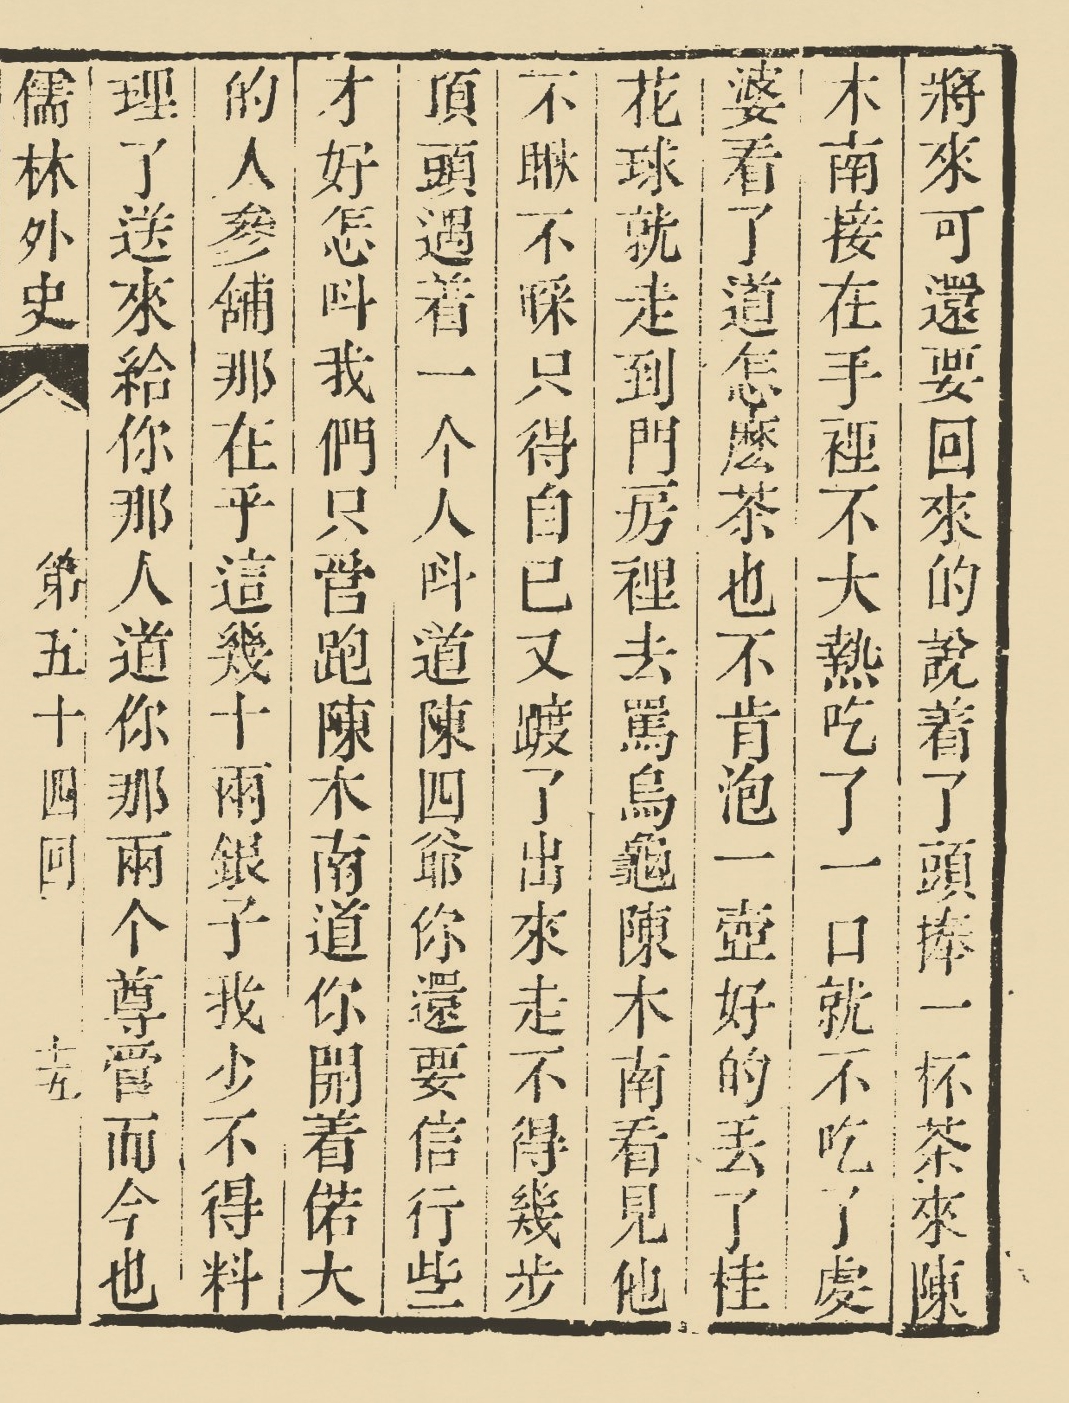 將來可還要回來的說着了頭捧一杯茶來陳
木南接在手裡不大熱吃了一口就不吃了虔
婆看了道怎麽茶也不肯泡一壺好的丟了桂
花球就走到門房裡去罵烏龜陳木南看見他
不瞅不睬只得自已又踱了出來走不得幾步
頂頭遇着一个人呌道陳四爺你還要信行些
才好怎呌我們只管跑陳木南道你開着偌大
的人參舖那在乎這幾十兩銀子我少不得料
理了送來給你那人道你那兩个尊管而今也
儒林外史
第五十四回
十五